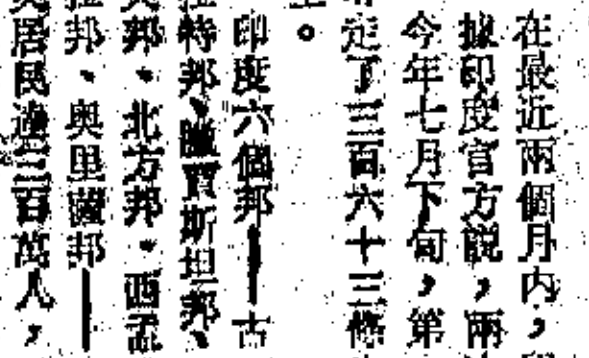 在最近兩個月内，
據印度官方說，兩
今年七月下旬，第
定了三百六十三條
。
印度六個邦——古
特邦、賈斯坦邦、
邦、北方邦、西孟
邦、奥里薩邦——
居民達三百萬人，